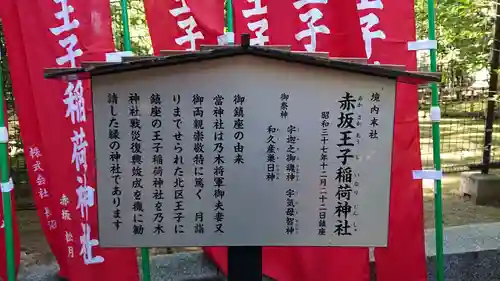 境内末社
赤坂王子稲荷神社
あかさかおうじいなりじんじゃ
昭和三十七年十二月二十二日鎮座
御祭神
宇迦之御魂神
宇気母智神
和久産巣日神
御鎮座の由来
当神社は乃木将軍御夫妻又
御両親崇敬特に篤く 月詣
りまでせられた北区王子に
鎮座の王子稲荷神社を乃木
神社戦災復興竣成を機に勧
請した縁の神社であります
王子稲荷神社
赤坂